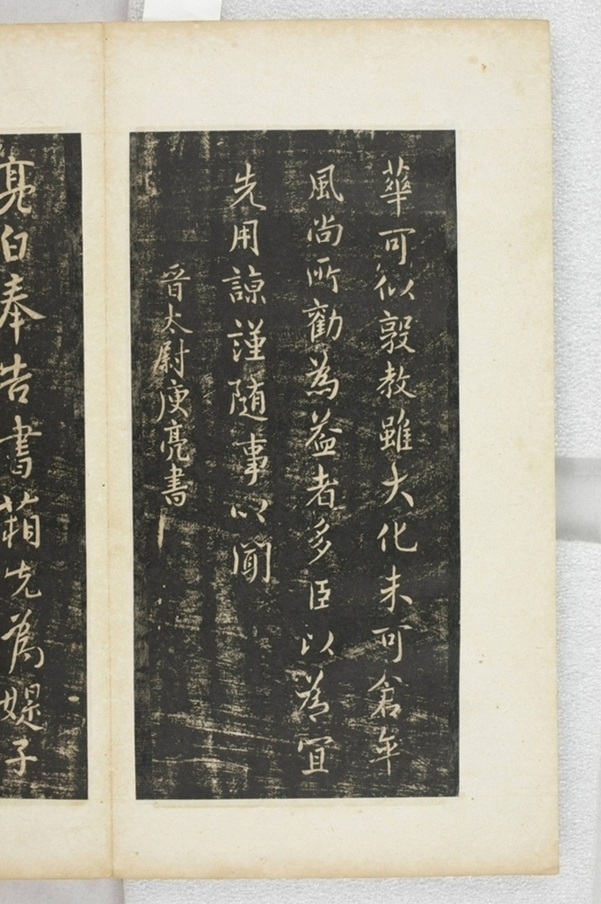 華可以敦教雖大化未可倉卒
風尚所勸為益者多臣以為宜
先用諒謹隨事以聞
晉太尉庾亮書
亮白奉告書箱先為媞子